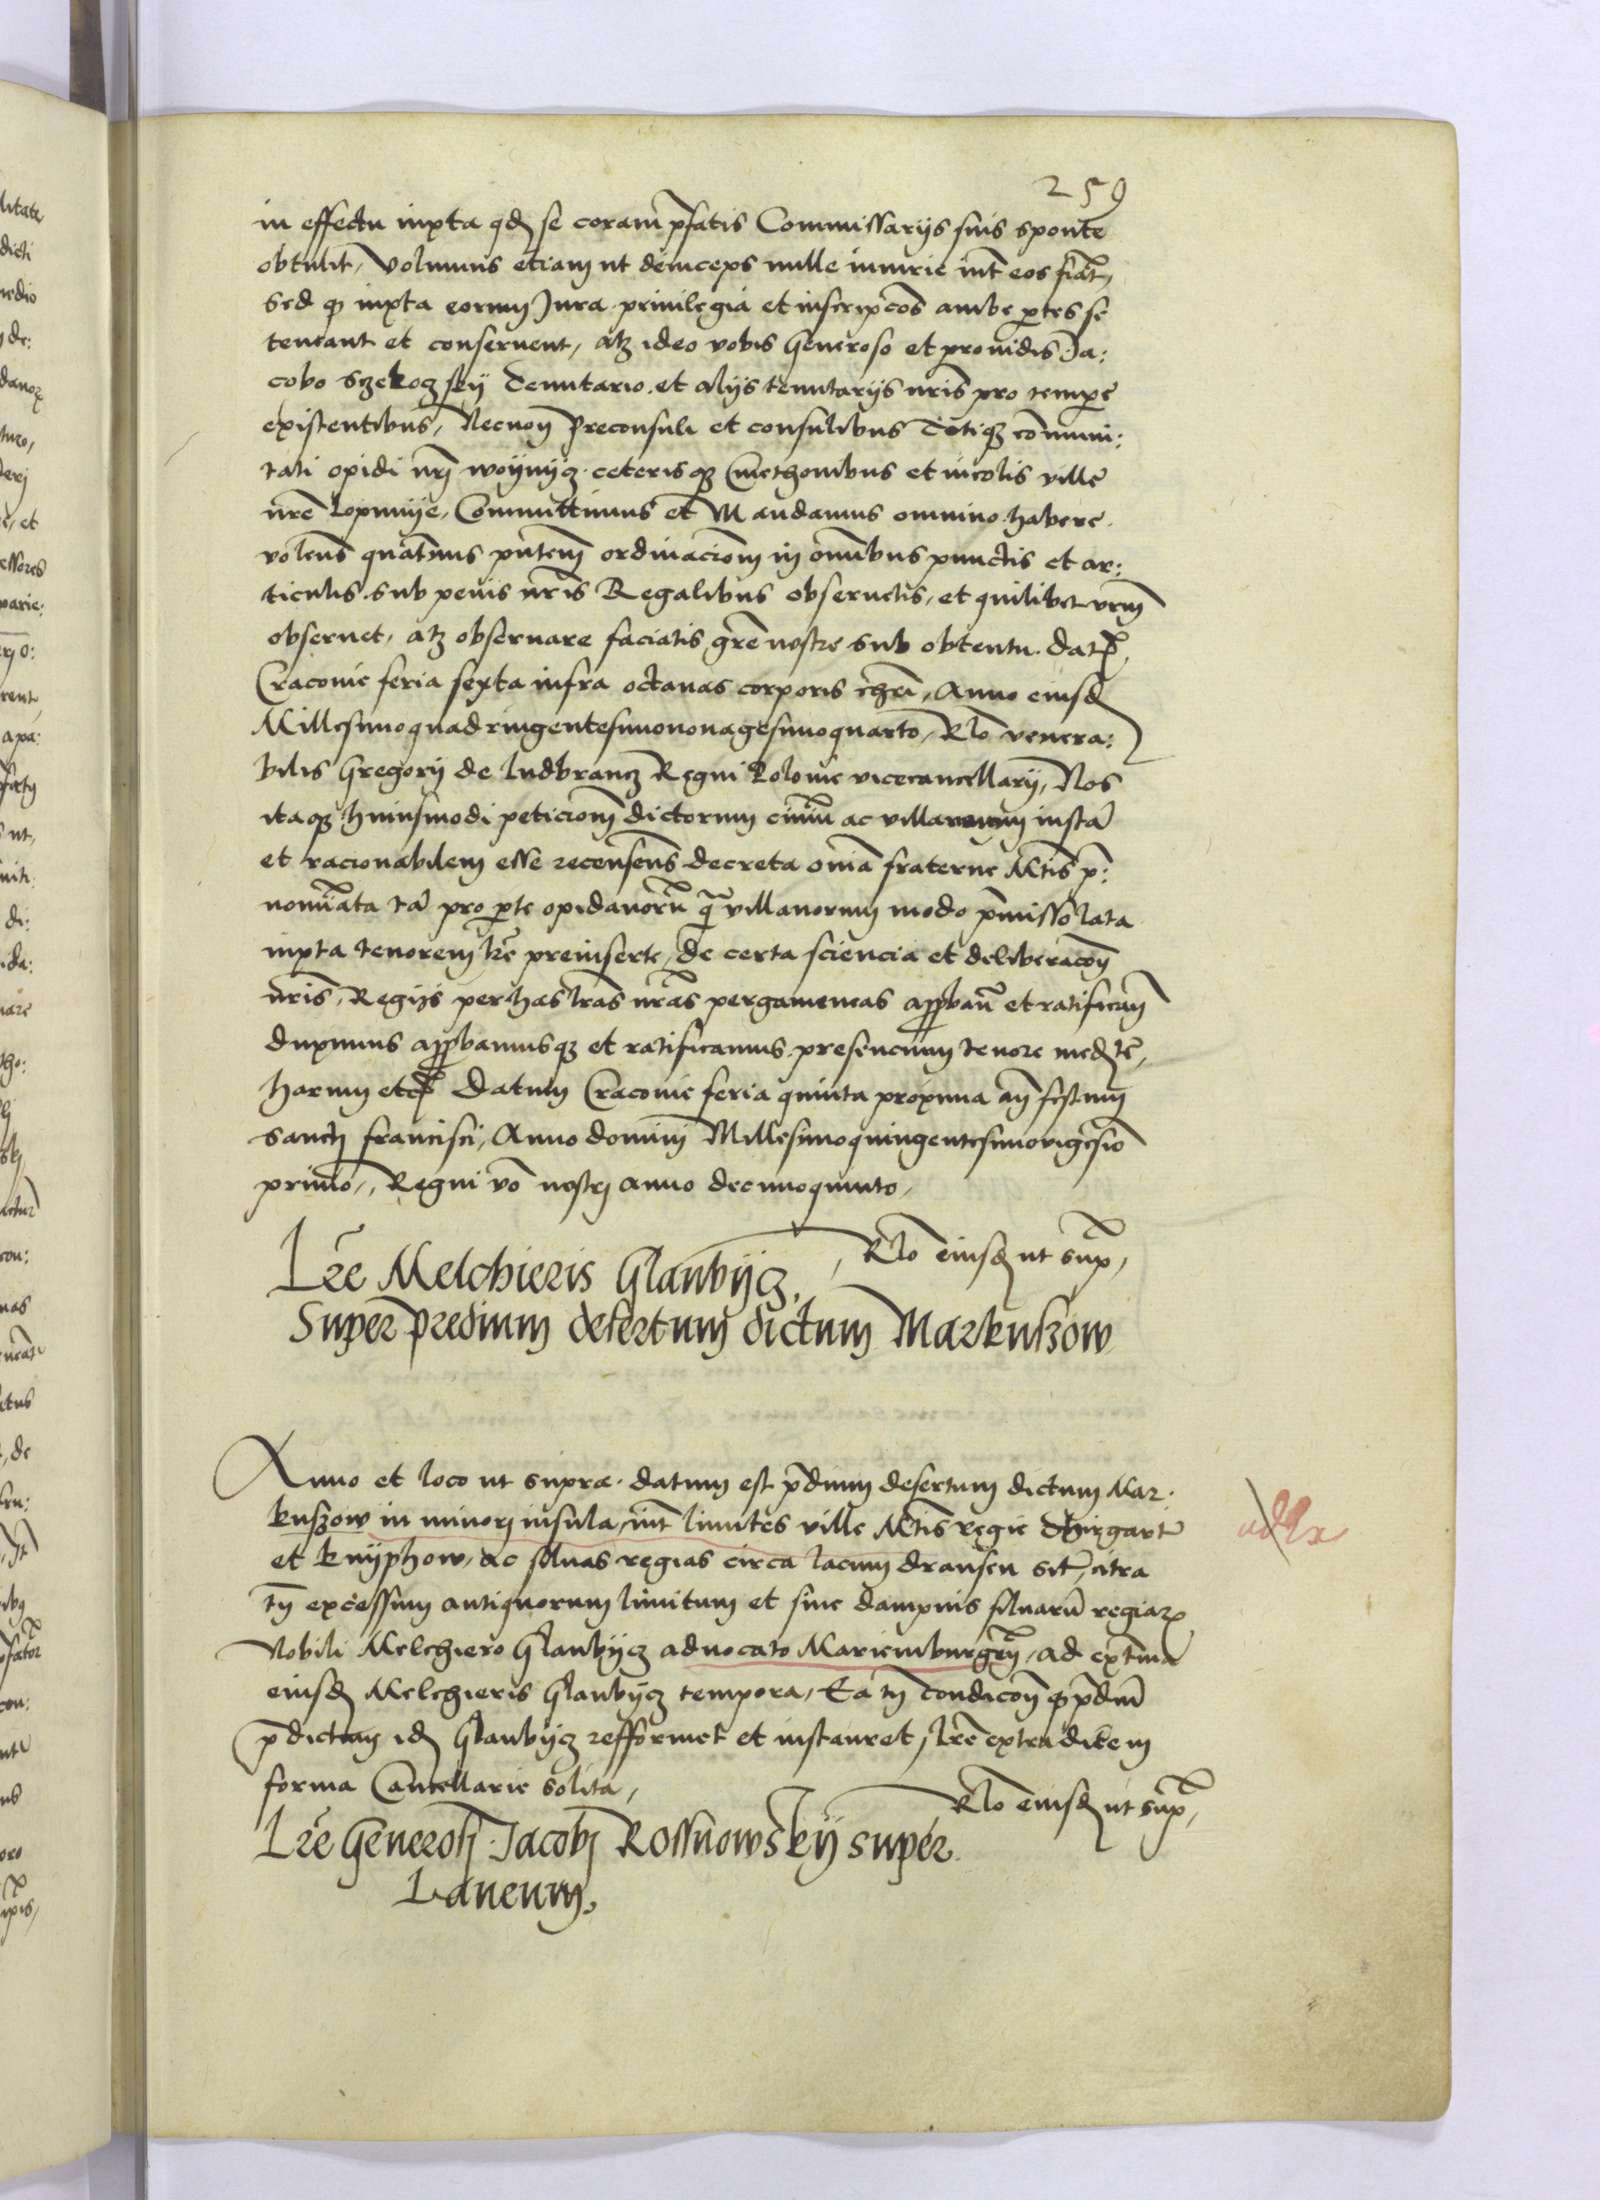 259
in effectu iuxta qd se coram pfatis Commissarijs suis sponte
obtulit, Volumus etiam ut deinceps nulle iniurie int eos fiat,
Sed qp iuxta eorum Jura privilegia et inscripcōs ambe ptes se
teneant et conservent, atq ideo vobis Generoso et providis Ja:
cobo Szekoczskij Tenutario et alijs tenutarijs nris pro tempe
existentibus, Necnon Preconsuli et consulibus Totiq commui:
tati opidi nri woijnijcz ceterisq Cmethonibus et incolis ville
nre Lopunije, Committimus et Mandamus omnino habere
volens quatinus pntem ordinacionem in omibus punctis et ar:
ticulis sub penis nris Regalibus observetis, et quilibet vrm
observet, atq observare faciatis gre nostre sub obtentu. Dat
Cracovie feria sexta infra octavas corporis chri, Anno eiusd
Millesimoquadringentesimononagesimoquarto, Rlo venera:
bilis Gregorij de Ludbrancz Regni Polonie vicecancellarij, Nos
itaq huiusmodi peticionem dictorum civium ac villanorum iusta
et racionabilem esse recensens decreta omia fraterne Mtis p:
nominata ta pro pte opidanoru q villanorum modo pmisso lata
iuxta tenorem lre preinserte, de certa sciencia et deliberacon
nris, Regijs per has lras nras pergameneas appban et ratificam
duximus appbamusq et ratificamus presencium tenore med te,
harum etc Datum Cracovie feria quinta proxima an festum
sancti francisci, Anno domini Millesimoquingentesimovigesio
primo, Regni vo nostri anno decimoquinto,
Rlo eiusd ut sup,
Lre Melchieris Glaubijcz,
Super predium desertum dictum Markuszow
Anno et loco ut supra datum est pdium desertum dictum Mar
kuszow in minori insula, int limites ville Mtis regie Thirgart
et knijphow, ac silvas regias circa lacum drausen sit, citra
tn excessum antiquorum limitum et sine dampnis silvaru regiar
Nobili Melchiero Glaubijcz advocato Mariemburgen, ad extma
eiusd Melchieris Glaubijcz tempora, Ea tn condicon q pdiu
pdictum id Glaubijcz refformet et instauret, lre extradite in
forma Cancellarie solita,
Rlo eiusd ut sup,
adlx
Lre Generosi Jacobi Rossnowskij super
Laneum,